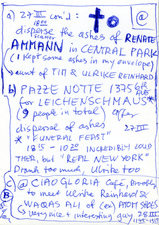 a) 27 III con'd:
1800
disperse
the ashes of RENATE
AMMANN in CENTRAL PARK
(I kept some ashes in my envelope)
aunt of TIM & ULRIKE REINHARD
b) PAZZE NOTTE 1375 6th AVE
for LEICHENSCHMAUS*
(9 people in total) after
disposal of ashes 27 III
* "FUNERAL FEAST"
1815 - 1015 INCREDIBLY COLD
THER, but "REAL NEW YORK"
Drank too much, Ulrike too
B a) CIAO GLORIA Cafe, Brooklyn
to meet Ulrike Reinhard &
WAQAS ALI of ATOM SHOES
very nice & interesting guy 28 III